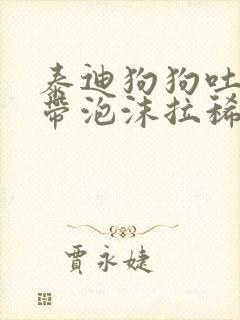 泰迪狗狗吐
带泡沫拉稀
贾永婕